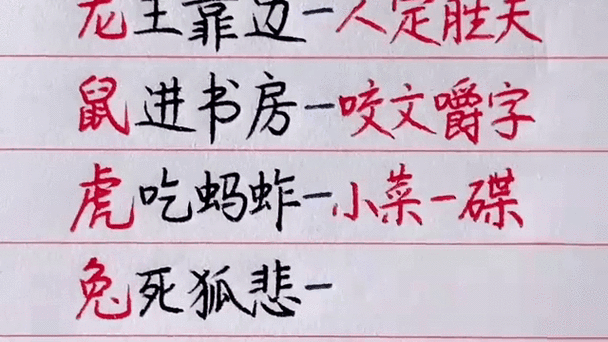 龙王靠边-人定胜天
鼠进书房-咬文嚼字
虎吃蚂蚱-小菜一碟
兔死狐悲-